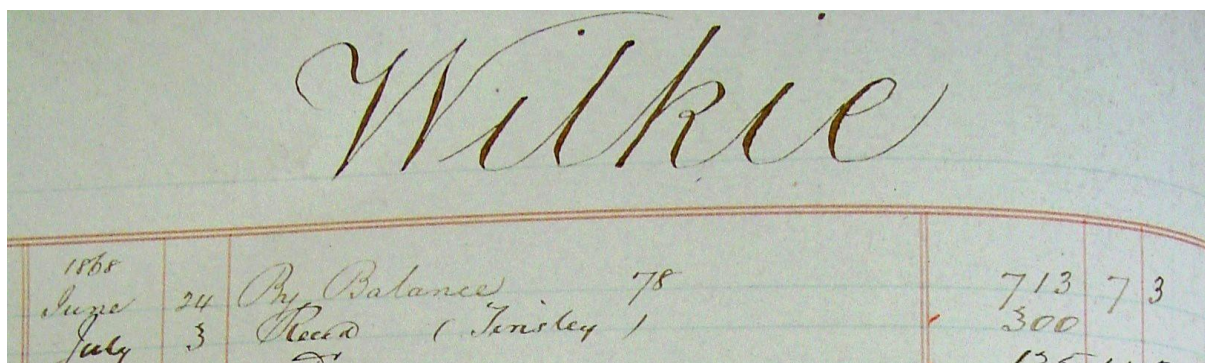 Wilkie
1868
June 24 By Balance 78 713 7 3
July 3 Recd (Tinsley) 300